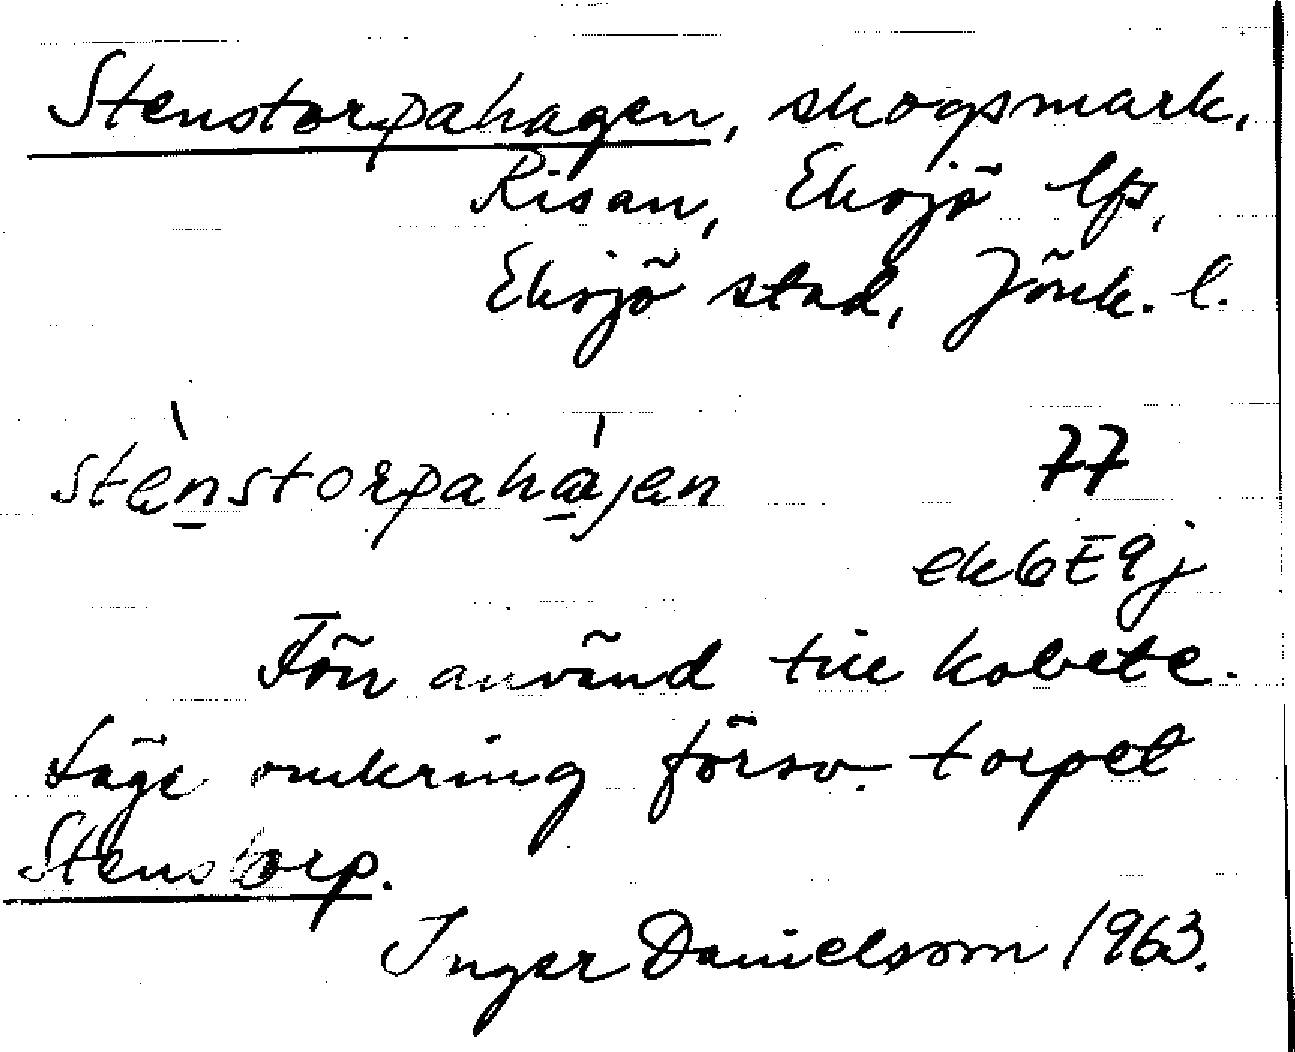 Stenstorpahagen, skogsmark,
Risan, Eksjö lfs,
Eksjö stad, Jönk. l.
stènstorpahájen 77
ek6E9j
Förr använd till kobete.
Läge omkring försv. torpet
Stenstorp.
Inger Danielsson 1963.